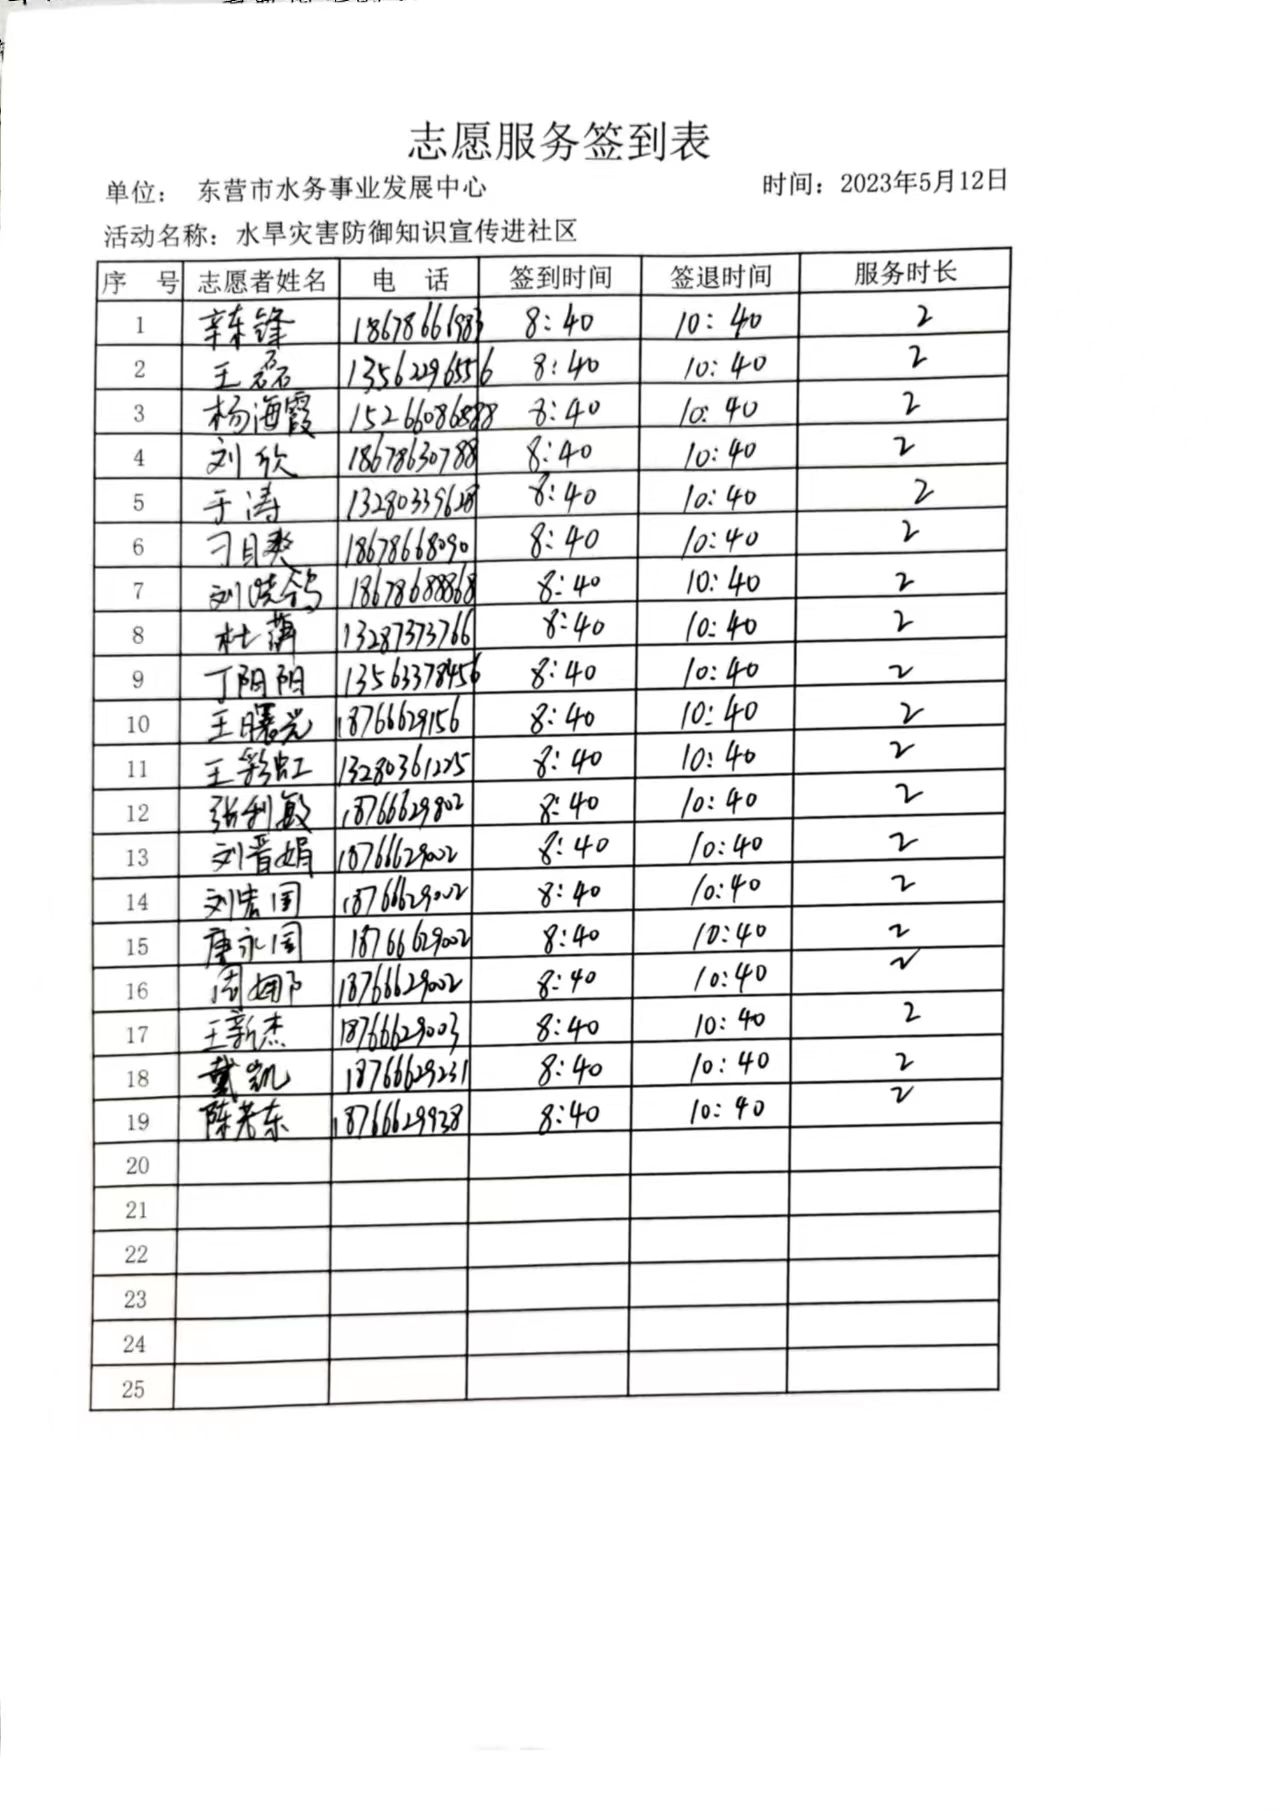 志愿服务签到表
单位： 东营市水务事业发展中心 时间：2023年5月12日
活动名称：水旱灾害防御知识宣传进社区
序 号 志愿者姓名 电 话 签到时间 签退时间 服务时长
1 辛东锋 18678666983 8:40 10:40 2
2 王磊 13562296556 8:40 10:40 2
3 杨海霞 15266086888 8:40 10:40 2
4 刘欣 18678630788 8:40 10:40 2
5 于涛 13280339628 8:40 10:40 2
6 刁目爽 18678668090 8:40 10:40 2
7 刘晓鸽 18678688868 8:40 10:40 2
8 杜 13287373766 8:40 10:40 2
9 丁阳阳 13563378456 8:40 10:40 2
10 王曙光 18766629156 8:40 10:40 2
11 王彩虹 13280361225 8:40 10:40 2
12 张利敏 18766629802 8:40 10:40 2
13 刘晋娟 18766629002 8:40 10:40 2
14 刘宏国 18766629002 8:40 10:40 2
15 唐永国 18766629002 8:40 10:40 2
16 周娜 18766629002 8:40 10:40 2
17 王新杰 18766629003 8:40 10:40 2
18 戴凯 18766629231 8:40 10:40 2
19 陈东 18766629938 8:40 10:40 2
20
21
22
23
24
25